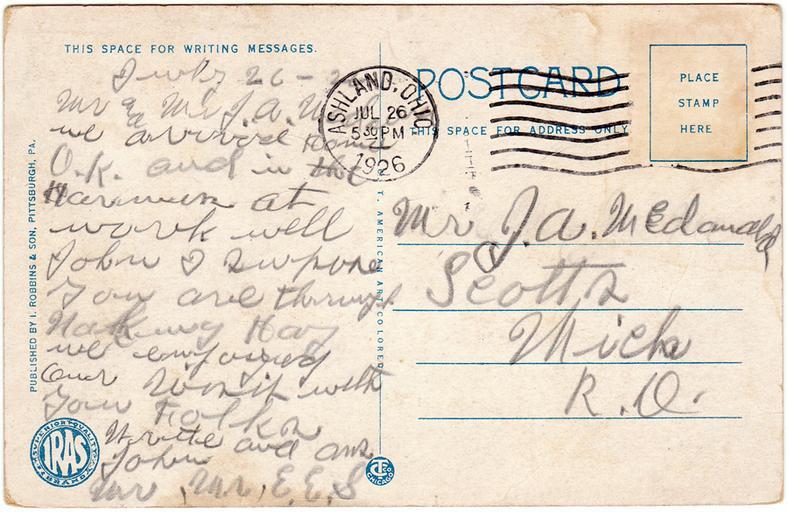 THIS SPACE FOR WRITING MESSAGES.
July 26 - 2
Mr & Mr J.A. M
we arrived Home
O.K. and in the
Harness at
work well
John I Supose
you are through
Making Hay
we enjoyed
our Visit with
your Folks
Write and ans
John
Mr, Mr, E.E.S
PUBLISHED BY I. ROBBINS & SON, PITTSBURGH, PA.
SUPERIOR QUALITY
IRAS
BRAND
ASHLAND, OHIO
JUL 26
530 PM
1926
POST CARD
THIS SPACE FOR ADDRESS ONLY
PLACE
STAMP
HERE
C. T. AMERICAN ART COLORED
CHICAGO
Mr J.A. McDonald
Scotts
Mich
R.D.